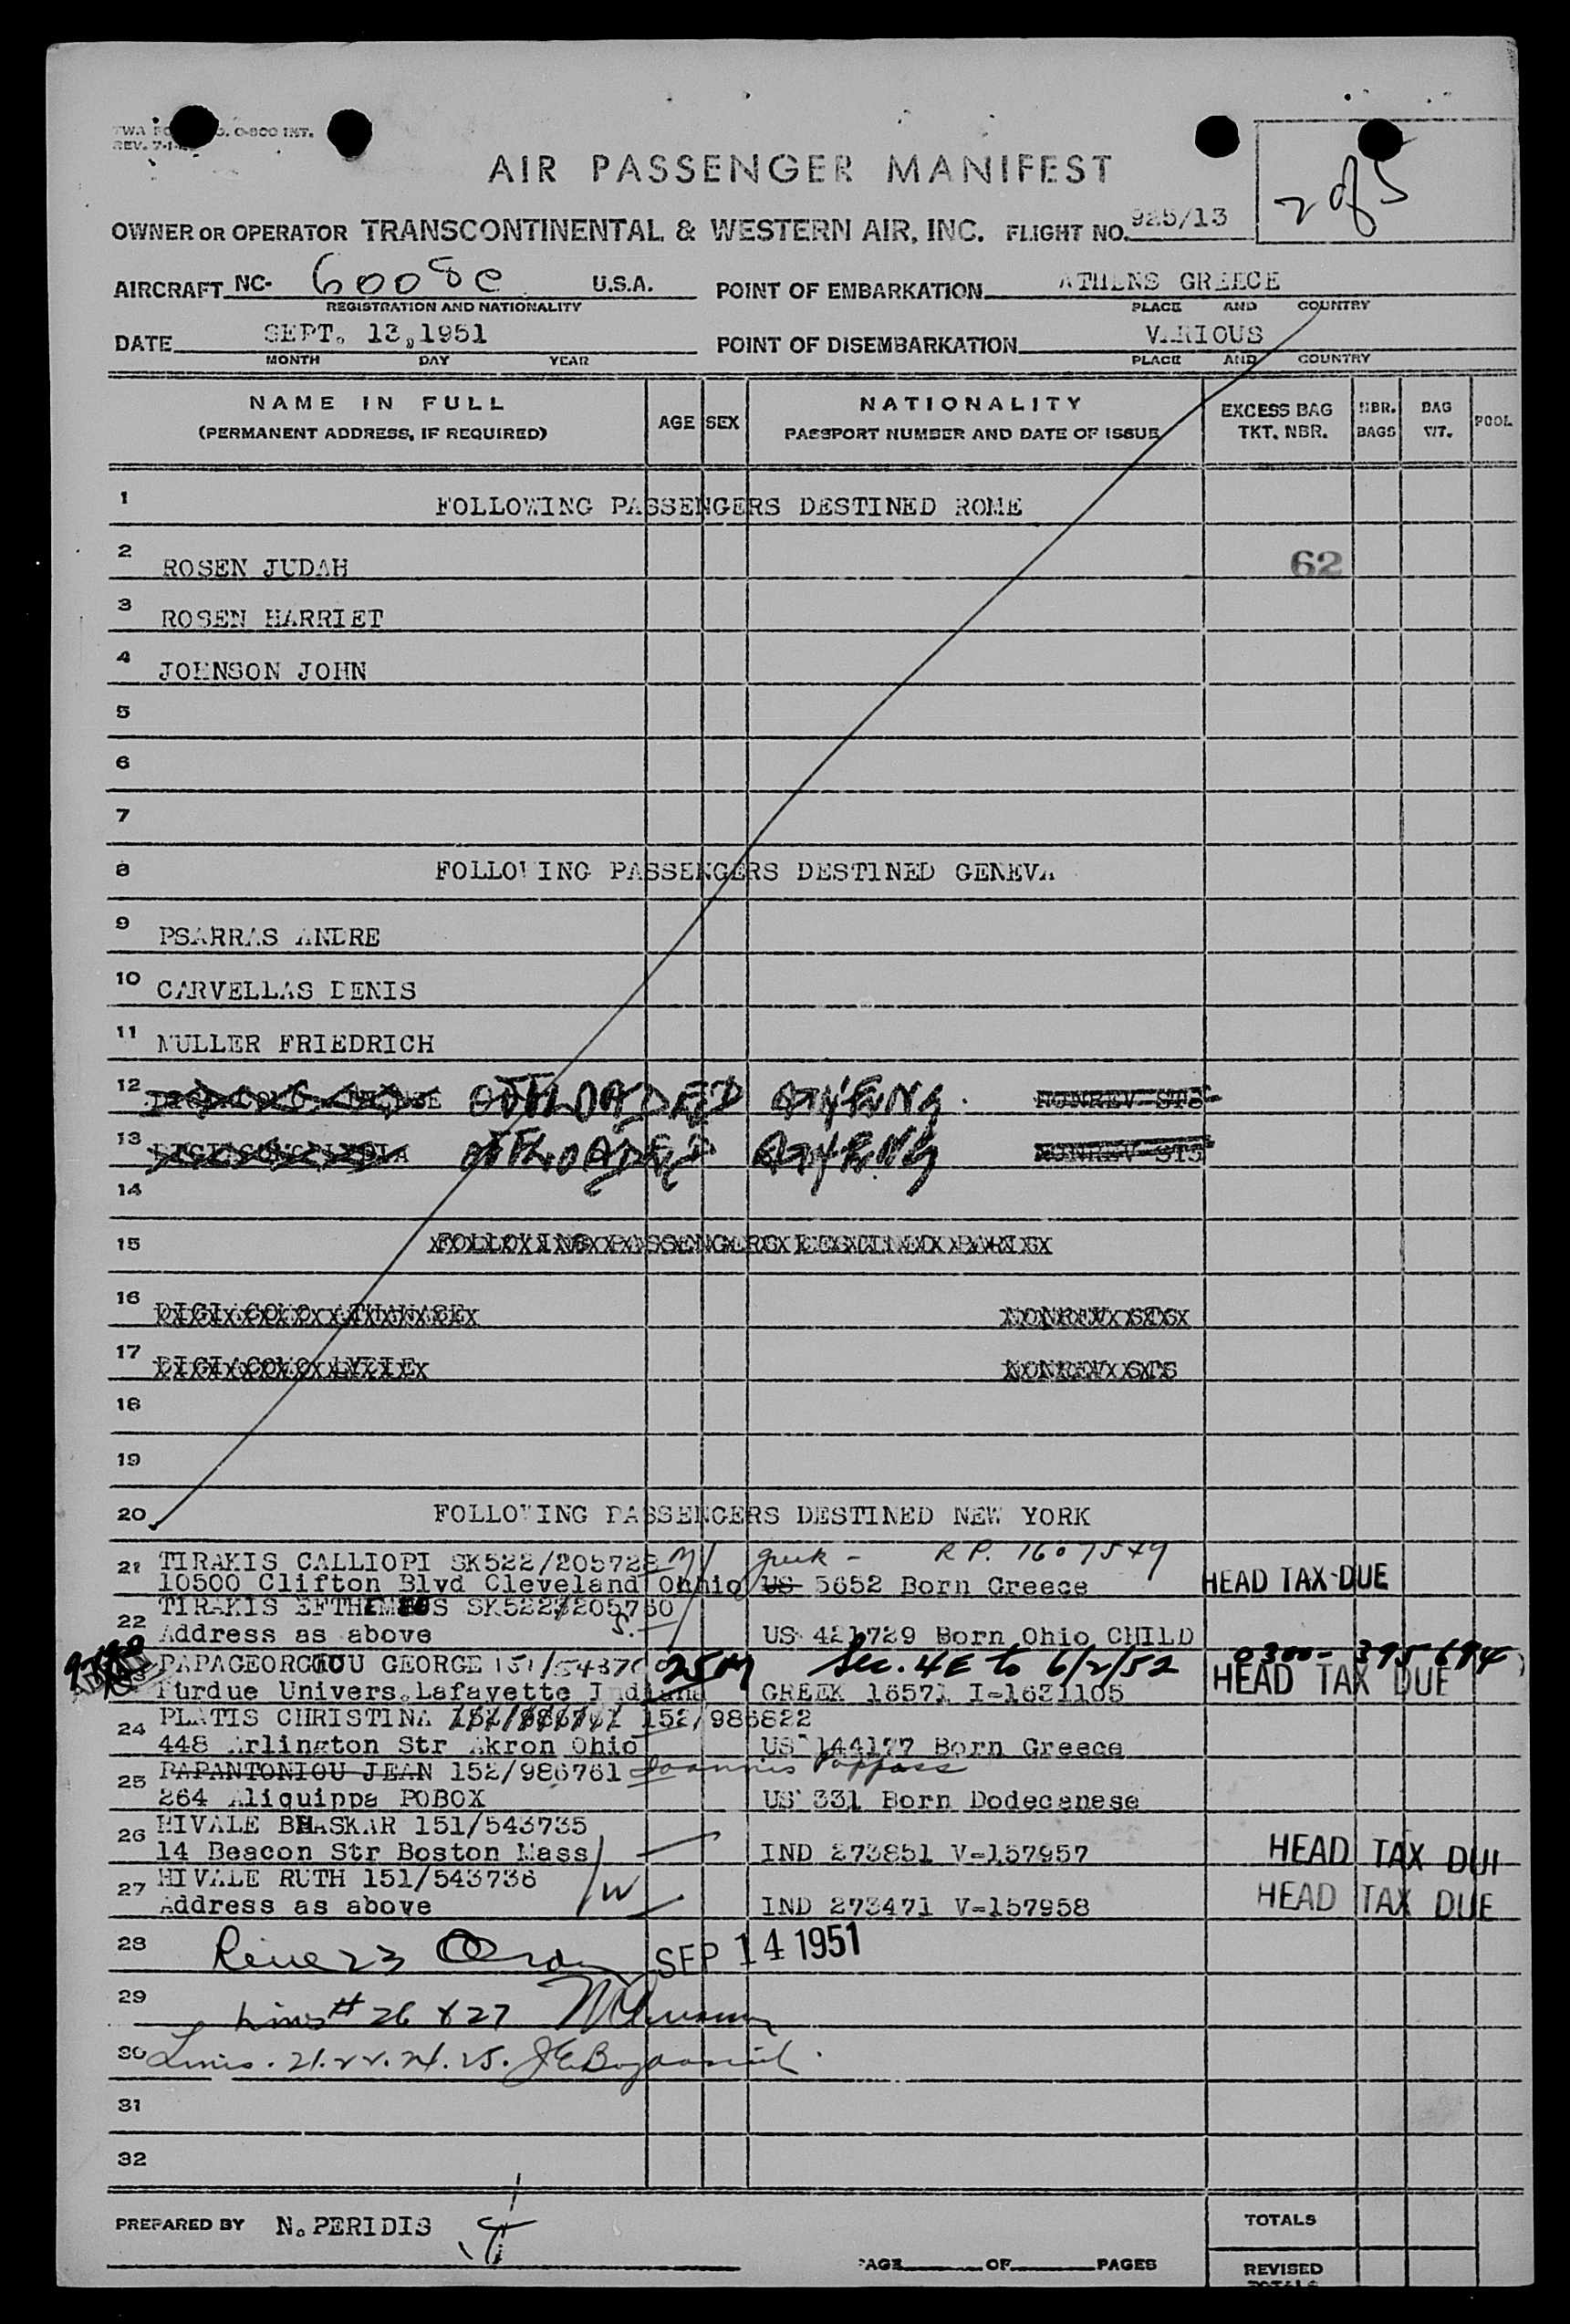 REV. 7-1-
AIR PASSENGER MANIFEST
2 of 5
OWNER OR OPERATOR TRANSCONTINENTAL & WESTERN AIR, INC. FLIGHT NO. 925/13
AIRCRAFT NC- 6008C U.S.A. POINT OF EMBARKATION ATHENS GREECE
REGISTRATION AND NATIONALITY PLACE AND COUNTRY
DATE SEPT. 13,1951 POINT OF DISEMBARKATION VARIOUS
MONTH DAY YEAR PLACE AND COUNTRY
NAME IN FULL AGE SEX NATIONALITY EXCESS BAG NBR. BAG POOL
(PERMANENT ADDRESS, IF REQUIRED) PASSPORT NUMBER AND DATE OF ISSUE TKT. NBR. BAGS WT.
1 FOLLOWING PASSENGERS DESTINED ROME
2 ROSEN JUDAH 62
3 ROSEN HARRIET
4 JOHNSON JOHN
5
6
7
8 FOLLOWING PASSENGERS DESTINED GENEVA
9 PSARRAS ANDRE
10 CARVELLAS DENIS
11 MULLER FRIEDRICH
12 OFFLOADED NONREV STS
13 OFFLOADED NONREV STS
14
15 FOLLOWING PASSENGERS DESTINED PARIS
16 DIGIACOMO ATHANASE NONREV STS
17 DIGIACOMO LYDIE NONREV STS
18
19
20 FOLLOWING PASSENGERS DESTINED NEW YORK
21 TIRAKIS CALLIOPI SK522/205728 M Greek - R P. 1607549
10500 Clifton Blvd Cleveland Ohhio US 5652 Born Greece HEAD TAX DUE
22 TIRAKIS EFTHEMEOS SK522/205760 S.
Address as above US 421729 Born Ohio CHILD
PAPAGEORGIOU GEORGE 151/54370 25 M Sec. 4E to 6/2/52 0300-395694
Purdue Univers.Lafayette Indiana GREEK 16571 I-1621105 HEAD TAX DUE
24 PLATIS CHRISTINA 152/986822
448 Arlington Str Akron Ohio US 144177 Born Greece
25 PAPANTONIOU JEAN 152/986761 Joannis Pappas
264 Aliquippa POBOX US 331 Born Dodecanese
26 HIVALE BHASKAR 151/543735
14 Beacon Str Boston Mass IND 273851 V-157957 HEAD TAX DUE
27 HIVALE RUTH 151/543736 W
Address as above IND 273471 V-157958 HEAD TAX DUE
28 Line 23 SEP 14 1951
29 Lines # 26 & 27
30 Lines. 21. 22. 24. 25.
31
32
PREPARED BY N. PERIDIS TOTALS
PAGE OF PAGES REVISED
TOTALS